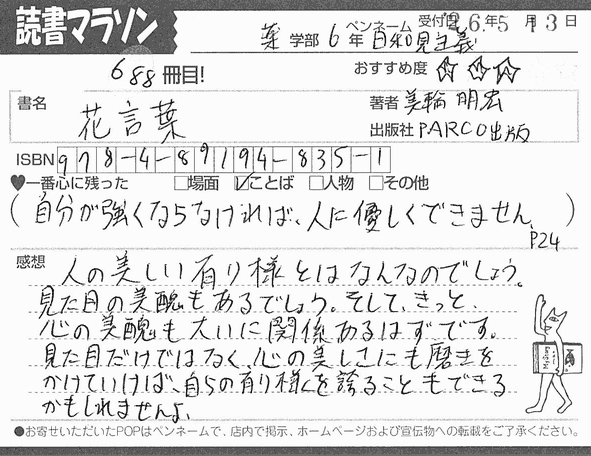 読書マラソン
薬 学部 6 年 ペンネーム 日和見主義 受付日 26年5月13日
688冊目!
おすすめ度 ☆☆☆
書名 花言葉
著者 美輪 明宏
出版社 PARCO出版
ISBN 978-4-89194-835-1
♥一番心に残った □場面 ☑ことば □人物 □その他
(自分が強くならなければ、人に優しくできません。)
P24
感想 人の美しい有り様とはなんなのでしょう。
見た目の美醜もあるでしょう。そして、きっと、
心の美醜も大いに関係あるはずです。
見た目だけではなく、心の美しさにも磨きを
かけていけば、自らの有り様を誇ることもできる
かもしれませんよ。
●お寄せいただいたPOPはペンネームで、店内で掲示、ホームページおよび宣伝物への転載をご了承ください。